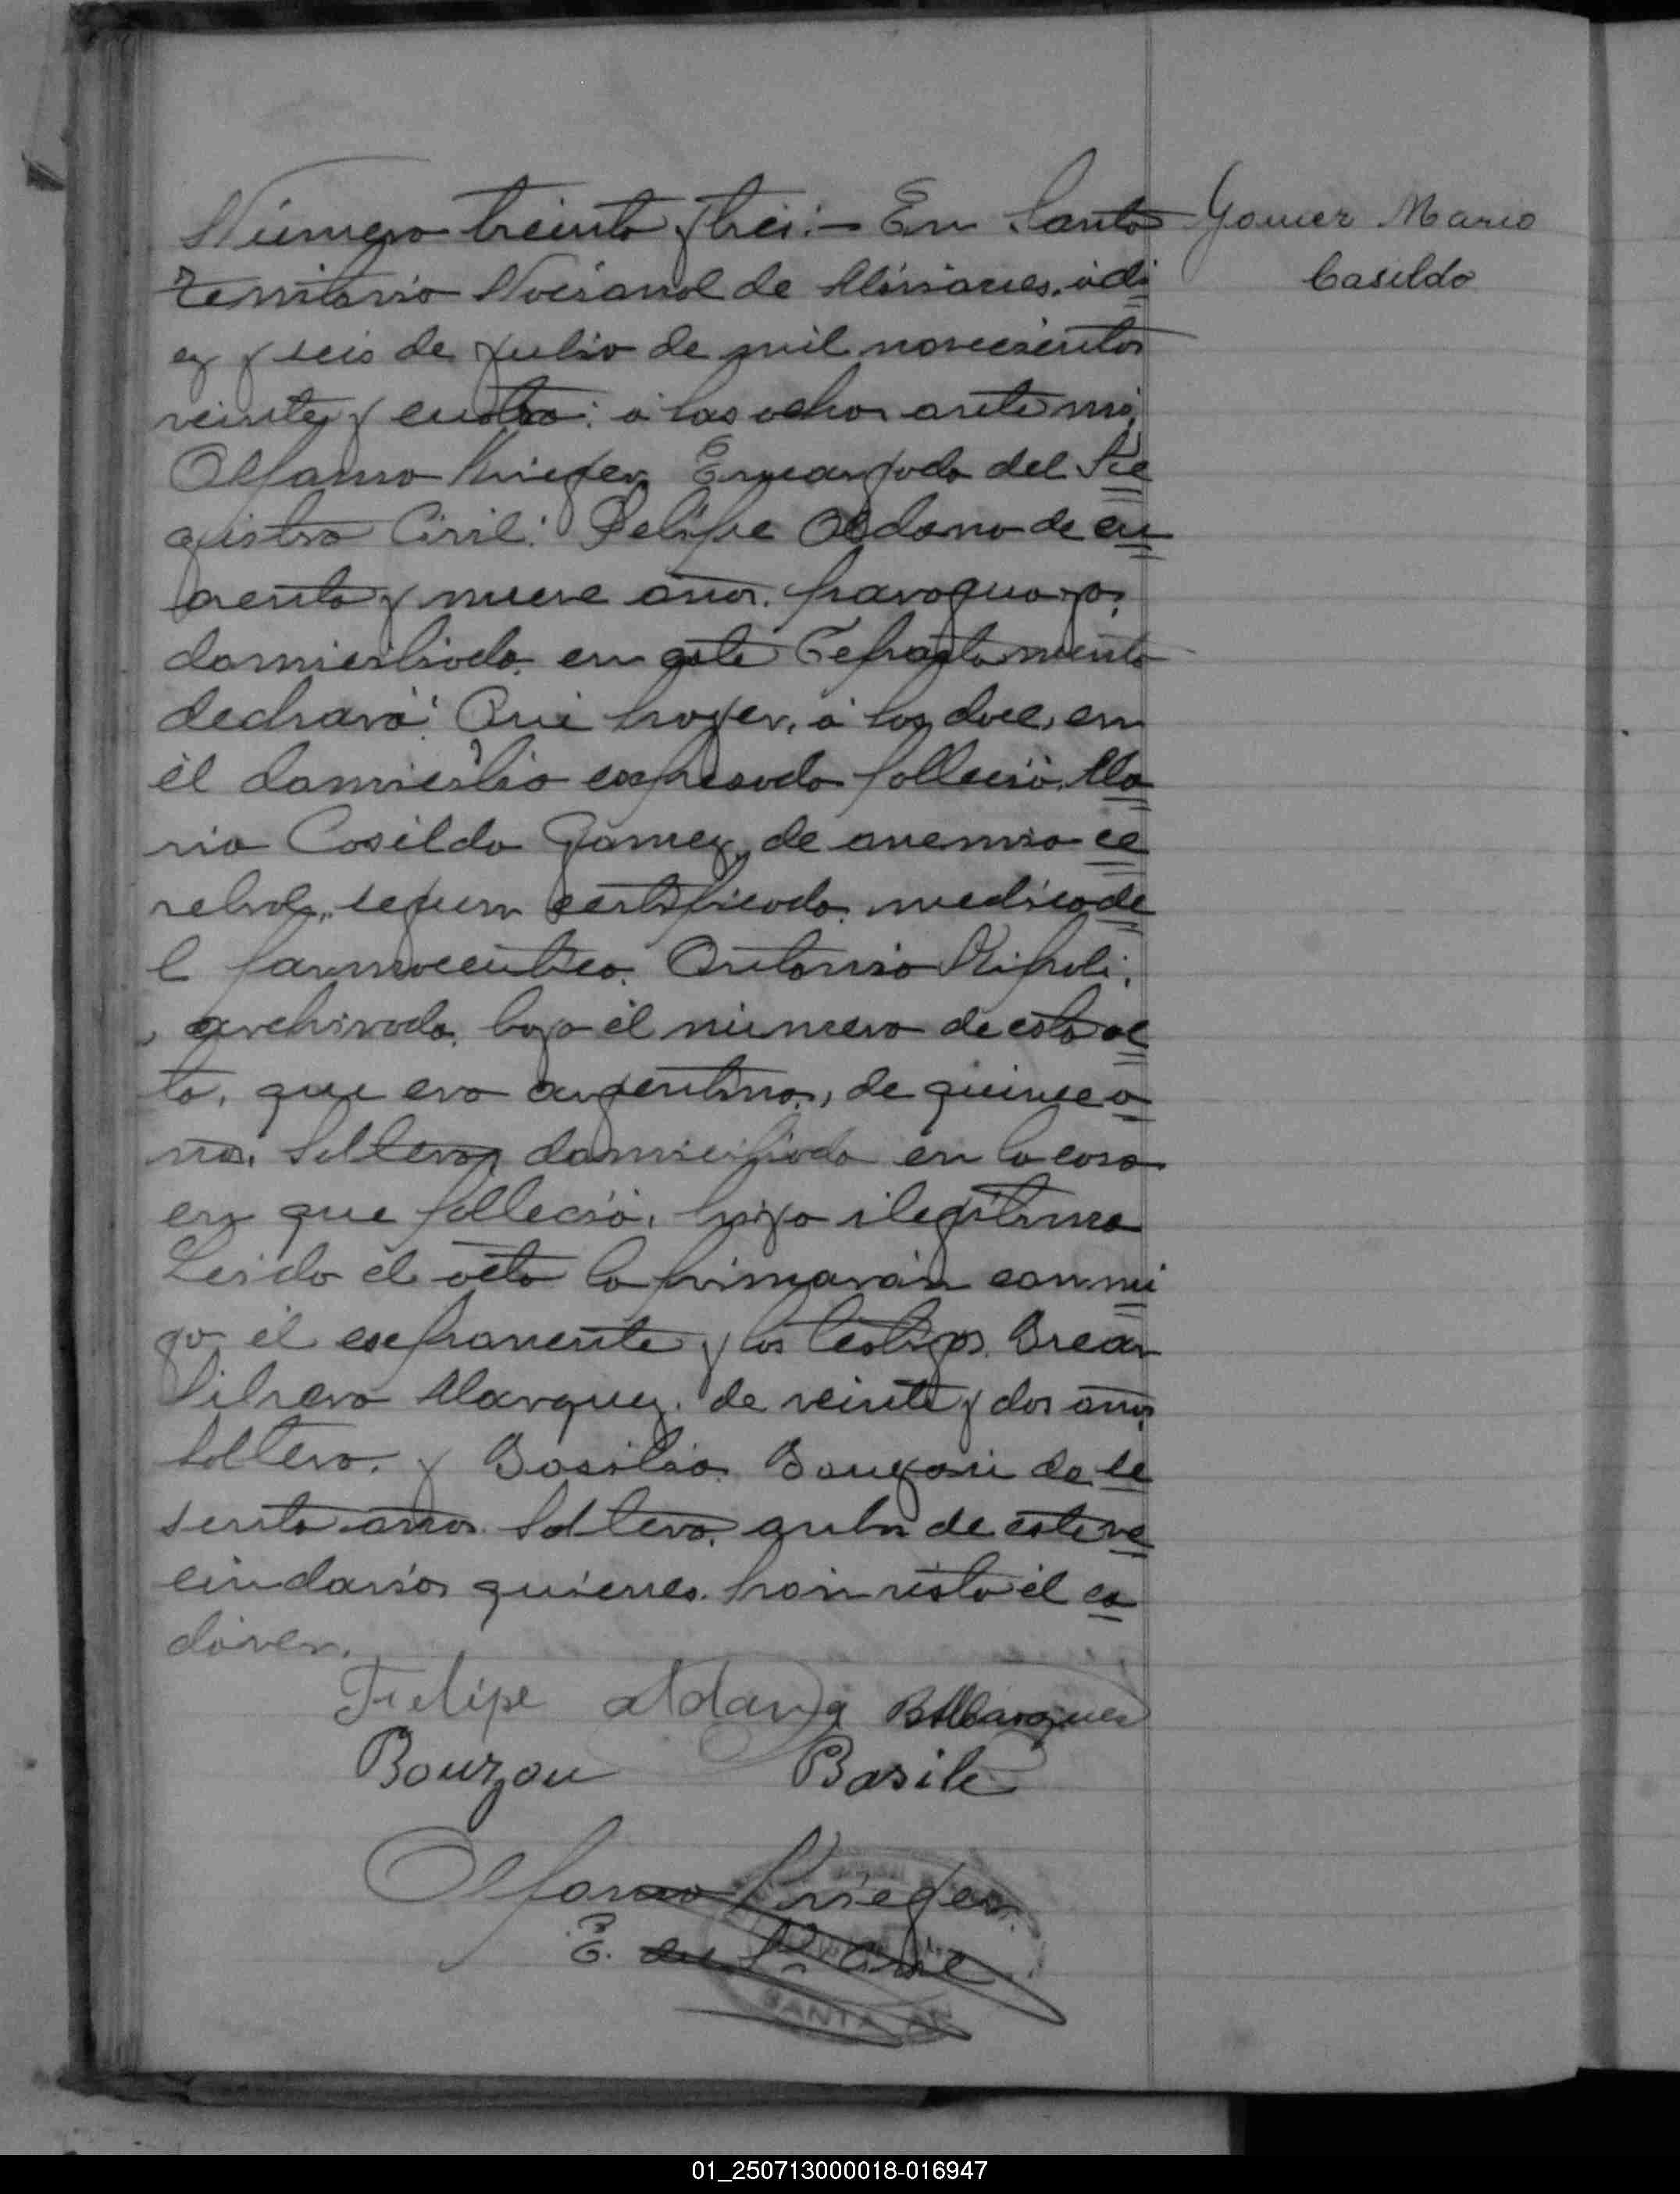 Número treinta y tres:— En Santa
Gomez Mario
Casildo
Territorio Nacional de Misiones, á di
ez y seis de Julio de mil novecientos
veinte y cuatro: á las ocho, ante mi,
Krieger, Encargado del Re
gistro Civil: Felipe Aldana de cu
arenta y nueve años, paraguayo,
domiciliado, en este Departamento
declaró: Que hoyer, á las doce, en
él domicilio expresado falleció Ma
rio Casildo Gomez, de anemia ce
rebral, segun certificado medico de
l farmaceutico Antonio Ripoli,
archivado, bajo él número de esta ac
ta, que era argentino, de quince a
ños, Soltero, domiciliado en la casa
en que falleció, hijo ilegitimo
Leido el acta la firmarán conmi
go él exponente y los testigos
Marquez, de veinte y dos años
Soltero, y Basilio Bouzon de se
senta años Soltero, anbos de este ve
cindario, quienes han visto él ca
dáver.
Felipe aldana B Marquez
Bouzou Basile
Krieger
E. del R. Civil
SANTA AN
01_250713000018-016947